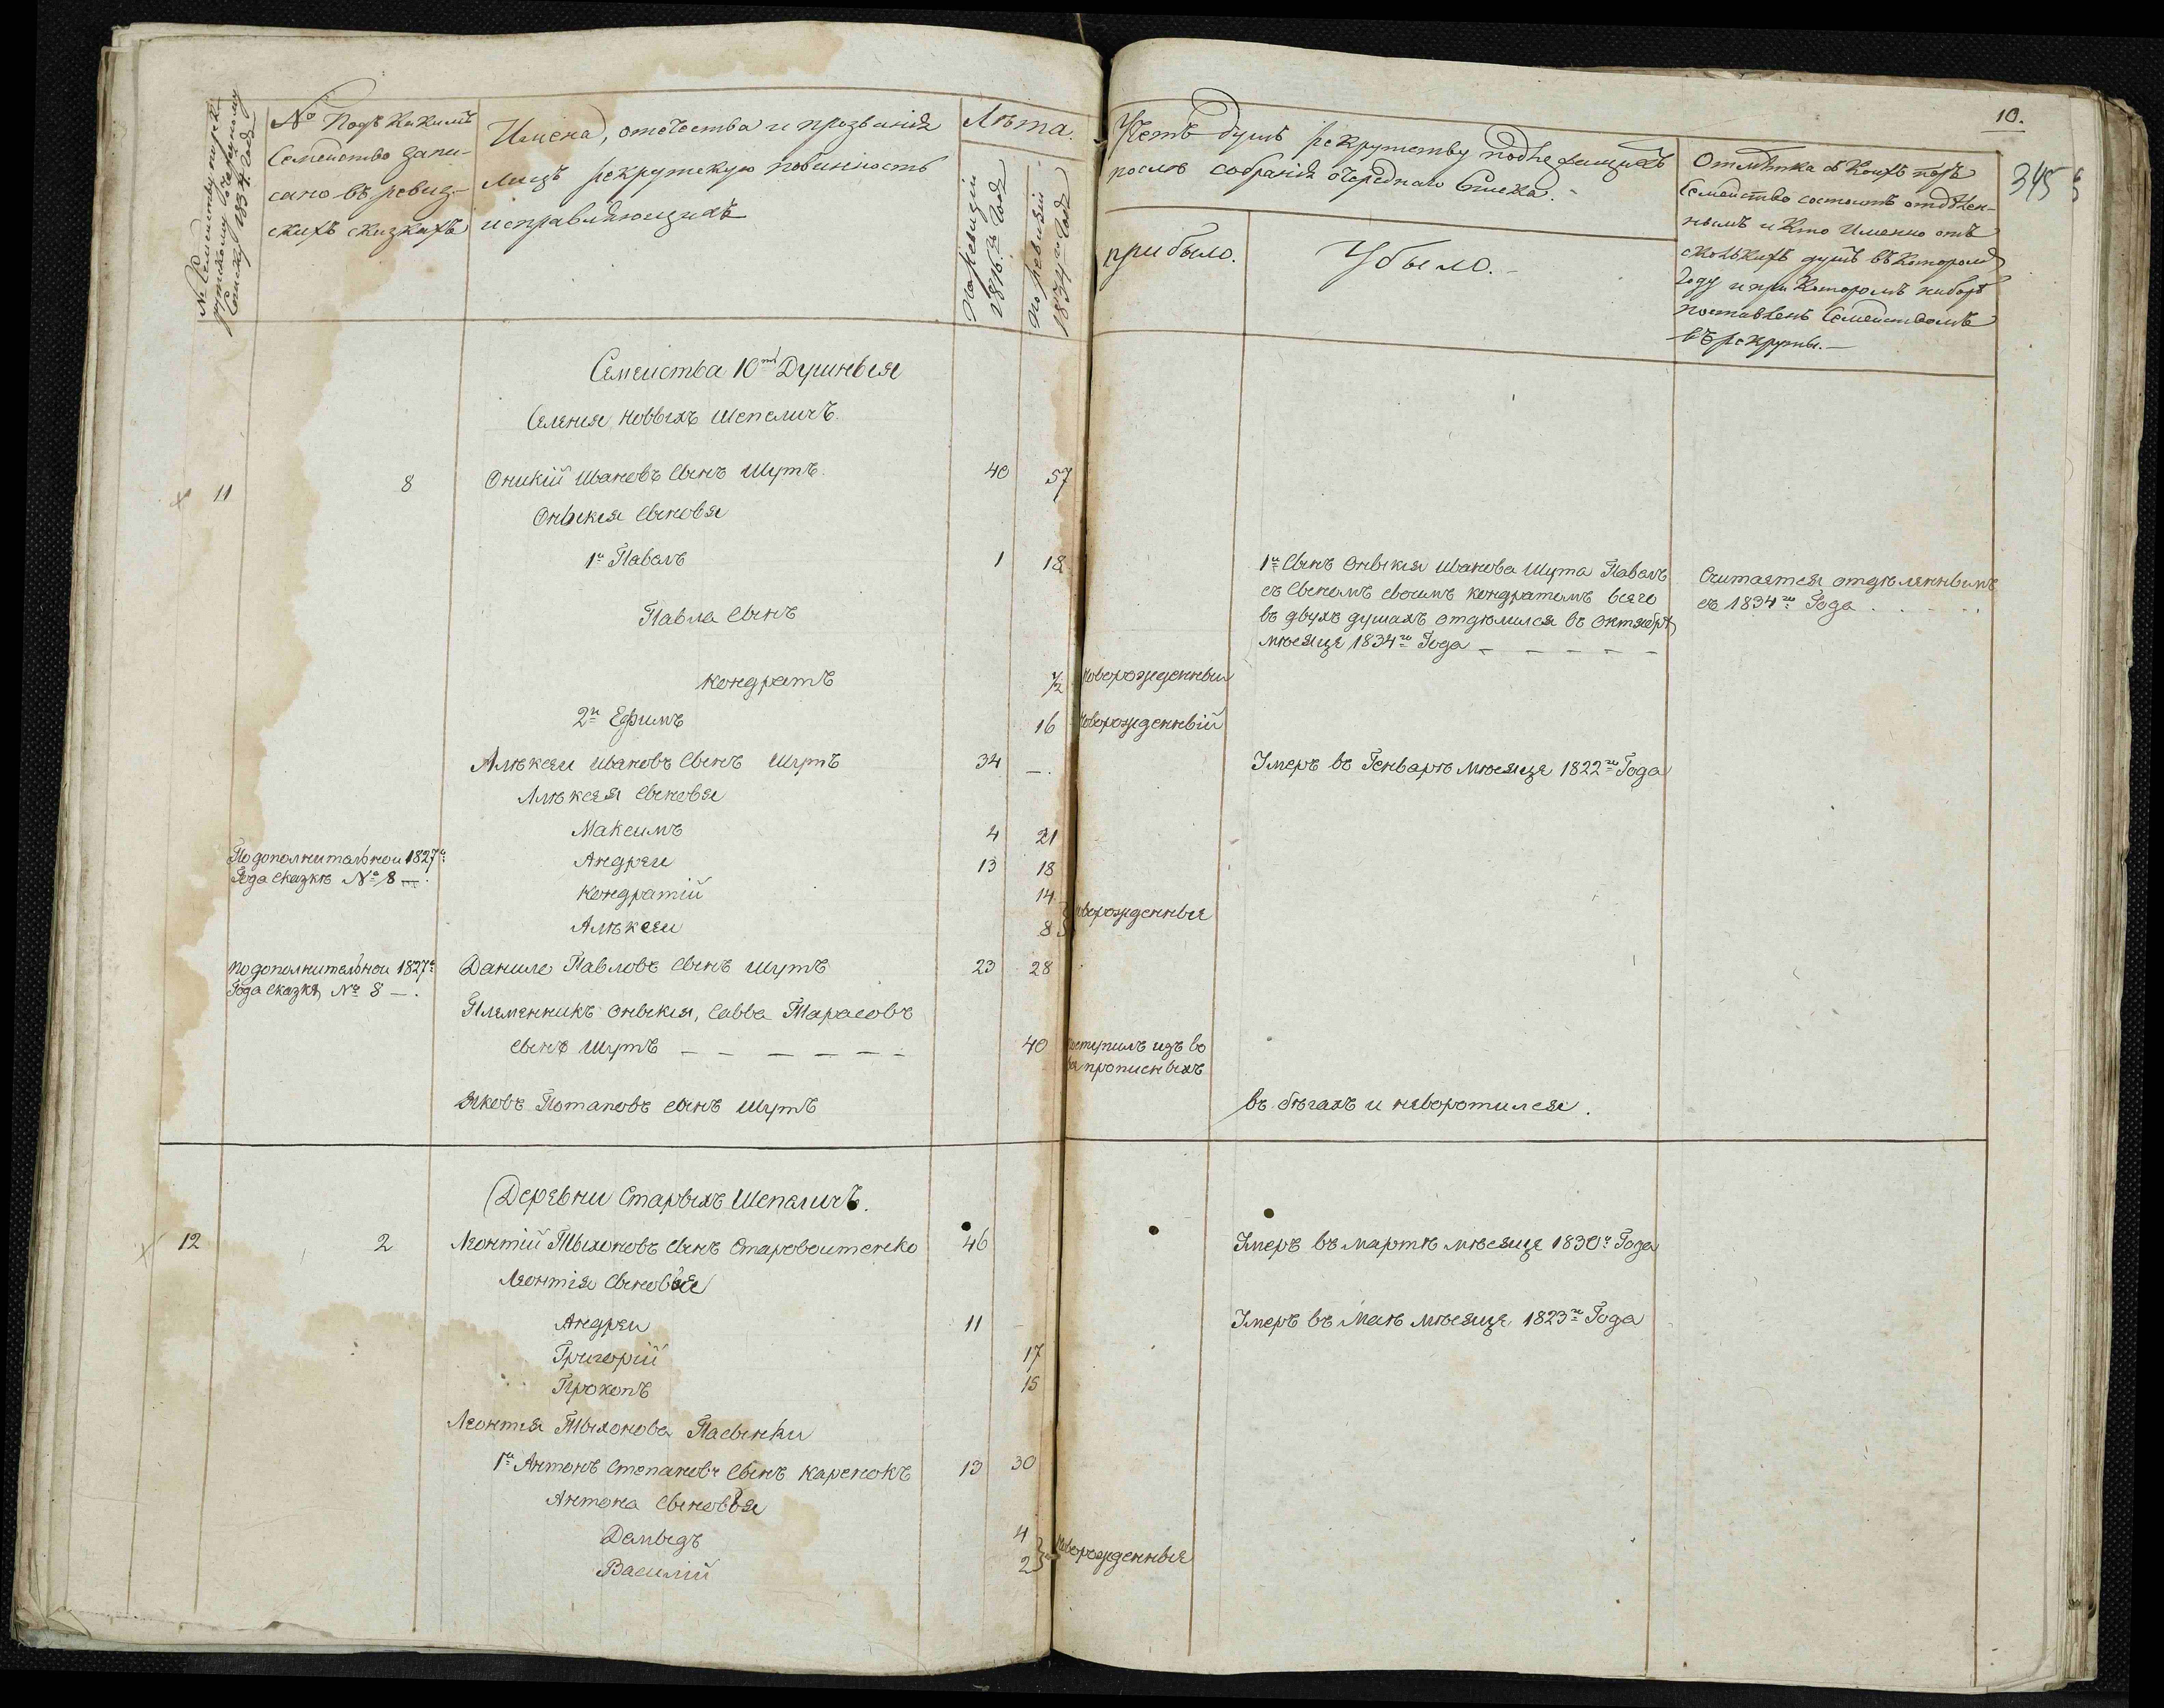 10.
345
№ Семейству по рек-
рутскому очередному
Списку 1834. Года
№ Подъ какимъ
Семейство запи-
сано въ ревиз-
скихъ сказкахъ
Имена, отечества и прозвания
лицъ рекрутскую повинность
исправляющихъ
Лѣта.
По ревизіи
1816.го Года
По ревизіи
1834го Года
Учетъ душъ рекрутству подлежащихъ
послѣ собранія очереднаго Списка.
прибыло.
Убыло.
Отмѣтка о коихъ
Семейство состоитъ отдѣлен-
нымъ и кто именно отъ
сколькихъ душъ въ которомъ
Году и при которомъ наборѣ
поставленъ Семействомъ
въ рекруты.
Семеиства 10ти Душныея
Селения новыхъ Шепеличъ.
11 8 Оникій Ивановъ Сынъ Шутъ. 40 57
Оныкея Сыновя
1й Павелъ 1 18 1й Сынъ Оныкея Иванова Шута Павелъ
съ Сыномъ своимъ кондратомъ всего
въ двухъ душахъ отдѣлился въ октябрѣ
мѣсяце 1834го Года
Считается отдѣленнымъ
съ 1834го Года
Павла Сынъ
кондратъ 1/2 новорожденныи
2й Ефимъ 16 новорожденный
Алѣксеи Ивановъ Сынъ Шутъ 34 —. Умеръ въ Генварѣ мѣсяце 1822го Года
Алѣксея Сыновя
Максимъ 4 21
По дополнительнои 1827г
Года сказкѣ № 8 —.
Андреи 13 18
Кондратій 14
Алѣксеи 8 новорожденные
по дополнительнои 1827г
Года сказкѣ № 8 —.
Данило Павловъ Сынъ Шутъ 23 28
Племенникъ Оныкея, Савва Тарасовъ
сынъ Шутъ 40 поступилъ изъ во
вя прописныхъ
Яковъ Потаповъ сынъ Шутъ въ бѣгахъ и неворотился.
Деревни Старыхъ Шепеличъ.
12 2 Леонтій Тыхоновъ Сынъ Старовоитенко 46 Умеръ въ мартѣ мѣсяце 1830г Года
Леонтія Сыновья
Андреи 11 Умеръ въ Маѣ мѣсяце 1823го Года
Григорій 17
Прокопъ 15
Леонтея Тыхонова Пасынки
1й Антонъ Степановъ Сынъ Каренокъ 13 30
Антона Сыновья
Демыдъ 4
Василій 2 новорожденныя